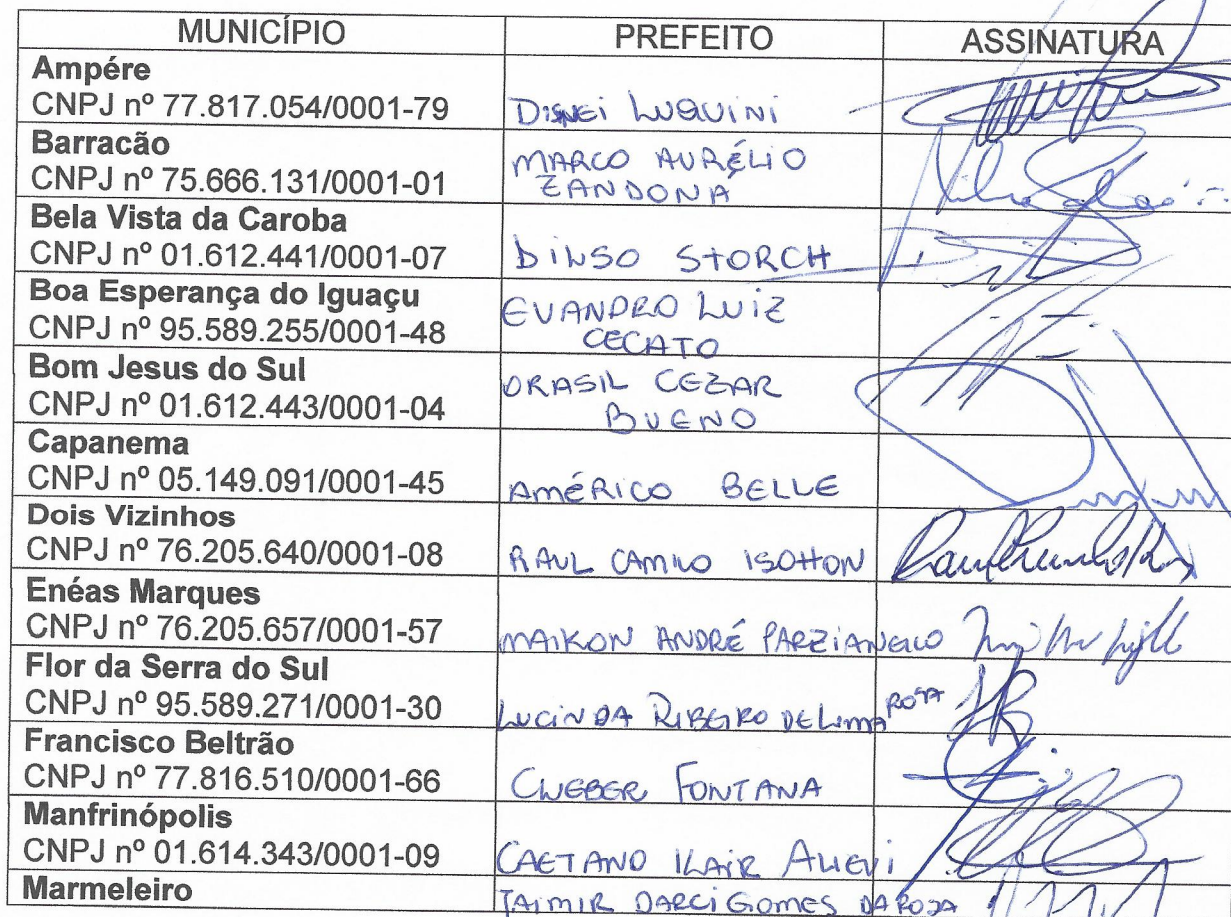 MUNICÍPIO PREFEITO ASSINATURA
Ampére
CNPJ nº 77.817.054/0001-79 DISNEI LUQUINI
Barracão MARCO AURÉLIO
CNPJ nº 75.666.131/0001-01 ZANDONA
Bela Vista da Caroba
CNPJ nº 01.612.441/0001-07 DILSO STORCH
Boa Esperança do Iguaçu EVANDRO LUIZ
CNPJ nº 95.589.255/0001-48 CECATO
Bom Jesus do Sul ORASIL CEZAR
CNPJ nº 01.612.443/0001-04 BUENO
Capanema
CNPJ nº 05.149.091/0001-45 AMÉRICO BELLE
Dois Vizinhos
CNPJ nº 76.205.640/0001-08 RAUL CAMILO ISOTTON
Enéas Marques
CNPJ nº 76.205.657/0001-57 MAIKON ANDRÉ PARZIANELLO
Flor da Serra do Sul
CNPJ nº 95.589.271/0001-30 LUCINDA RIBEIRO DE LIMA ROSA
Francisco Beltrão
CNPJ nº 77.816.510/0001-66 CLEBER FONTANA
Manfrinópolis
CNPJ nº 01.614.343/0001-09 CAETANO ILAIR ALIEVI
Marmeleiro JAIMIR DARCI GOMES DA ROSA